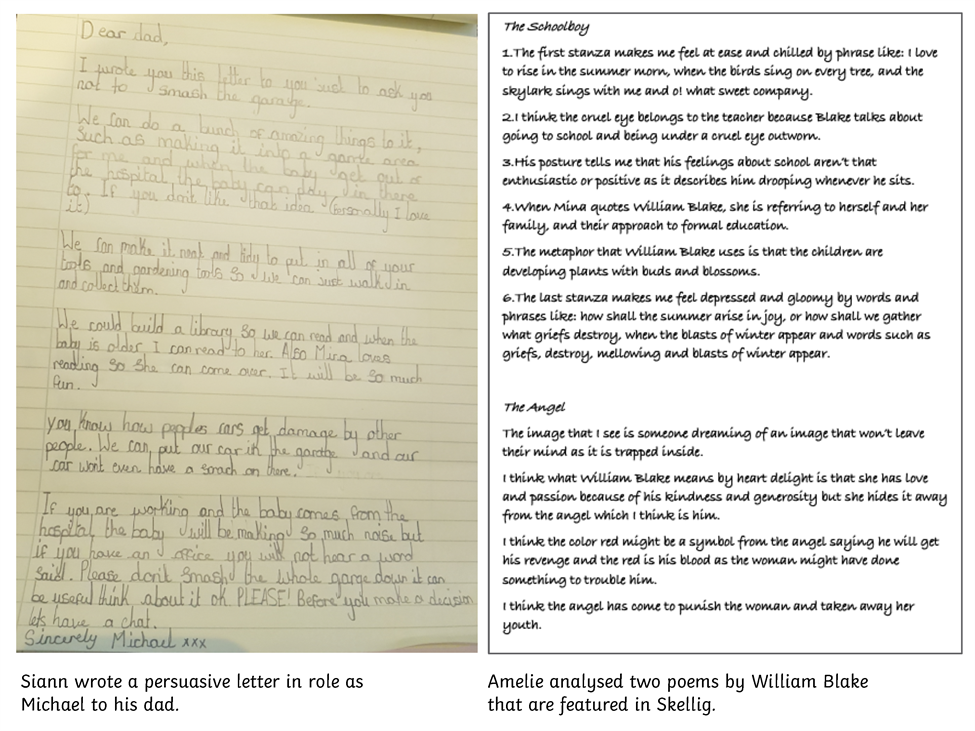 Dear dad,
I wrote you this letter to you just to ask you
not to smash the garage.
We can do a bunch of amazing things to it,
Such as making it into a game area
for me and when the baby get out of
the hospital the baby can play in there
to. If you don't like that idea (Personally I love
it)
We can make it neat and tidy to put in all of your
tools and gardening tools So we can just walk in
and collect them.
We could build a library So we can read and when the
baby is older I can read to her. Also Mina loves
reading So she can come over. It will be so much
fun.
you know how peoples cars get damage by other
people. We can put our car in the garage and our
car won't even have a on there.
If you are working and the baby comes from the
hospital the baby will be making so much noise but
if you have an office you will not hear a word
said. Please don't smash the whole garge down it can
be useful think about it ok PLEASE! Before you make a decision
lets have a chat.
Sincerely Michael xxx
The Schoolboy
1.The first stanza makes me feel at ease and chilled by phrase like: I love
to rise in the summer morn, when the birds sing on every tree, and the
skylark sings with me and o! what sweet company.
2.I think the cruel eye belongs to the teacher because Blake talks about
going to school and being under a cruel eye outworn.
3.His posture tells me that his feelings about school aren't that
enthusiastic or positive as it describes him drooping whenever he sits.
4.When Mina quotes William Blake, she is referring to herself and her
family, and their approach to formal education.
5.The metaphor that William Blake uses is that the children are
developing plants with buds and blossoms.
6.The last stanza makes me feel depressed and gloomy by words and
phrases like: how shall the summer arise in joy, or how shall we gather
what griefs destroy, when the blasts of winter appear and words such as
griefs, destroy, mellowing and blasts of winter appear.
The Angel
The image that I see is someone dreaming of an image that won't leave
their mind as it is trapped inside.
I think what William Blake means by heart delight is that she has love
and passion because of his kindness and generosity but she hides it away
from the angel which I think is him.
I think the color red might be a symbol from the angel saying he will get
his revenge and the red is his blood as the woman might have done
something to trouble him.
I think the angel has come to punish the woman and taken away her
youth.
Siann wrote a persuasive letter in role as
Michael to his dad.
Amelie analysed two poems by William Blake
that are featured in Skellig.